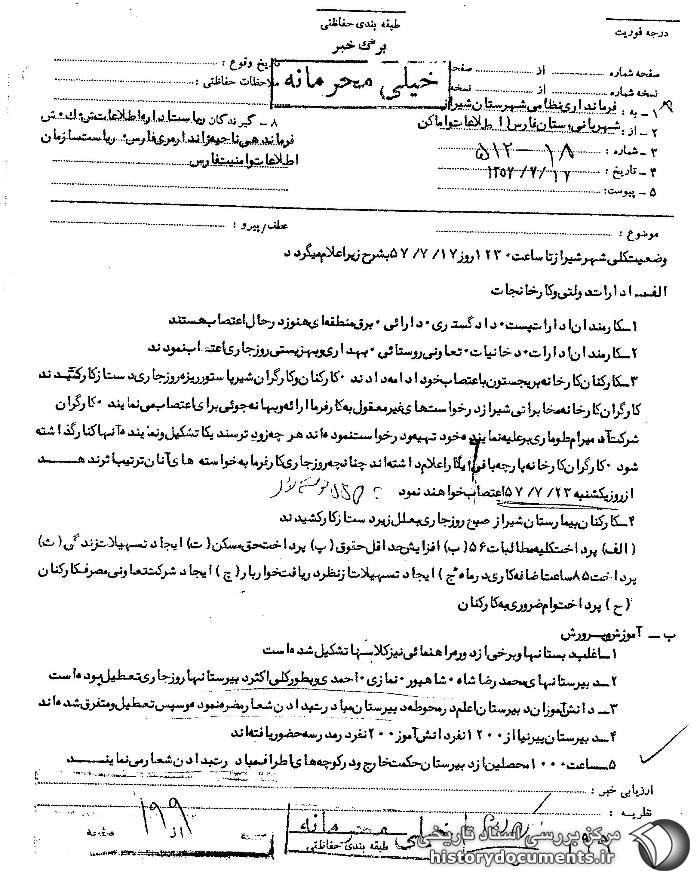 طبقه بندی حفاظتی
درجه فوریت
برگ خبر
صفحه شماره از صفحه
تاریخ وقوع :
نسخه شماره از نسخه
ملاحظات حفاظتی :
خیلی محرمانه
۱ - به : فرمانداری نظامی شهرستان شیراز
۲ - از : شهربانی استان فارس ( اطلاعات و اماکن
۳ - شماره : ۱۸-۵۱۲
۴ - تاریخ : ۱۳۵۷/۷/۱۷
۵ - پیوست:
۸ - گیرندگان ریاست اداره اطلاعات ش . ک . ش
فرماندهی ناحیه ژاندارمری فارس . ریاست سازمان
اطلاعات و امنیت فارس
موضوع :
عطف / پیرو :
وضعیت کلی شهر شیراز تا ساعت ۱۲۳۰ روز ۵۷/۷/۱۷ بشرح زیر اعلام میگردد
الف ـ ادارات دولتی و کارخانجات
۱ـ کارمندان ادارات پست . دادگستری . دارائی . برق منطقه ای هنوز در حال اعتصاب هستند
۲ـ کارمندان ادارات . دخانیات . تعاونی روستائی . بهداری و بهزیستی روز جاری اعتصاب نمودند
۳ـ کارکنان کارخانه بریجستون با اعتصاب خود ادامه دادند . کارکنان و کارگران شیر پاستوریزه روز جاری دست از کار کشیدند
کارگران کارخانه مخابراتی شیراز درخواست های غیر معقول به کارفرما ارائه و بهانه جوئی برای اعتصاب می نمایند . کارگران
شرکت آدمیرام طوماری بر علیه نماینده خود تهیه و درخواست نموده اند هر چه زودتر سندیکا تشکیل و نماینده آنها کنار گذاشته
شود . کارگران کارخانه پارچه بافی اعلام داشته اند چنانچه روز جاری کارفرما به خواسته های آنان ترتیب اثر ندهد
از روز یکشنبه ۵۷/۷/۲۳ اعتصاب خواهند نمود
۴ـ کارکنان بیمارستان شیراز صبح روز جاری بعلل زیر دست از کار کشیدند
(الف) پرداخت کلیه مطالبات ۵۶ (ب) افزایش حداقل حقوق (پ) پرداخت حق مسکن (ت) ایجاد تسهیلات زندگی (ث)
پرداخت ۸۵ ساعت اضافه کاری در ماه (ج) ایجاد تسهیلات از نظر دریافت خواربار (چ) ایجاد شرکت تعاونی مصرف کارکنان
(ح) پرداخت وام ضروری به کارکنان
ب ـ آموزش و پرورش
۱ـ اغلب دبستانها و برخی از دوره راهنمائی نیز کلاسها تشکیل شده است
۲ـ دبیرستانهای محمدرضا شاه . شاهپور . نمازی . احمدی و بطور کلی اکثر دبیرستانها روز جاری تعطیل بوده است
۳ـ دانش آموزان دبیرستان اعلم در محوطه دبیرستان مبادرت بدادن شعار مضره نموده و سپس تعطیل و متفرق شده اند
۴ـ دبیرستان پیرنیا از ۱۲۰۰ نفر دانش آموز ۲۰۰ نفر در مدرسه حضور یافته اند
۵ـ ساعت ۱۰۰۰ محصلین از دبیرستان حکمت خارج و در کوچه های اطراف مبادرت بدادن شعار می نمایند
ارزیابی خبر :
نظریه :
صفحه از صفحه
۱۹۹
خیلی محرمانه
طبقه بندی حفاظتی
مرکز بررسی اسناد تاریخی
historydocuments.ir